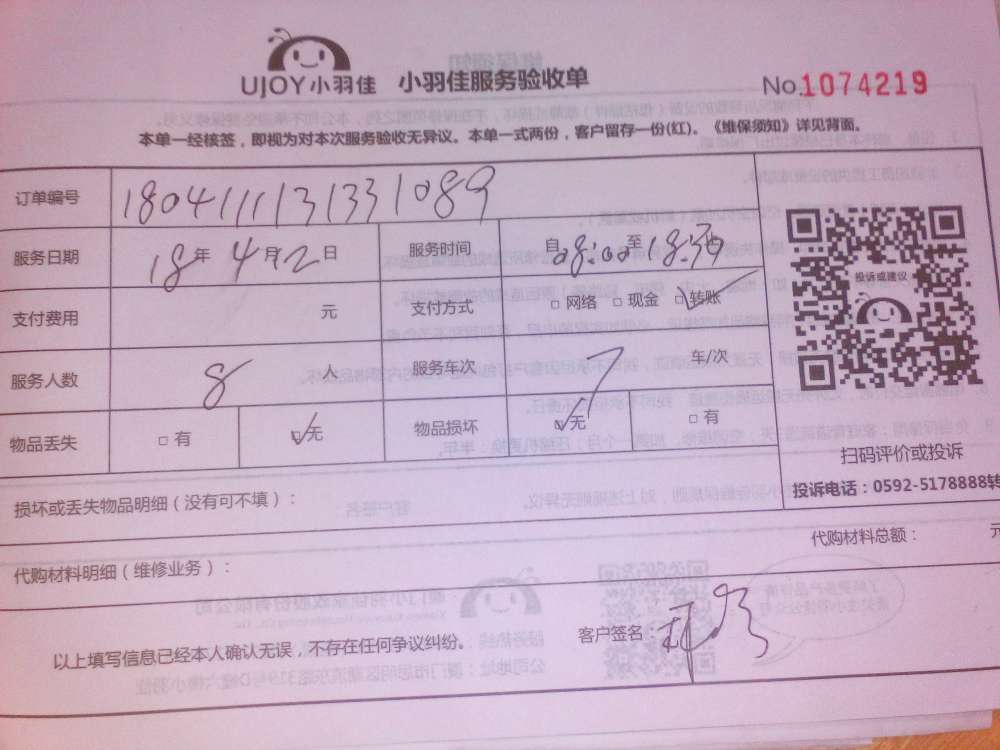 UJOY小羽佳 小羽佳服务验收单 No.1074219
本单一经核签，即视为对本次服务验收无异议。本单一式两份，客户留存一份(红)。《维保须知》详见背面。
订单编号 1804111131331089
服务日期 18年4月2日 服务时间 自08:00至18:30
支付费用 元 支付方式 □网络 □现金 □转账
服务人数 8人 服务车次 7车/次
物品丢失 □有 ☑无 物品损坏 ☑无 □有
投诉或建议
扫码评价或投诉
投诉电话：0592-5178888转
损坏或丢失物品明细（没有可不填）：
代购材料总额： 元
代购材料明细（维修业务）：
以上填写信息已经本人确认无误，不存在任何争议纠纷。 客户签名：